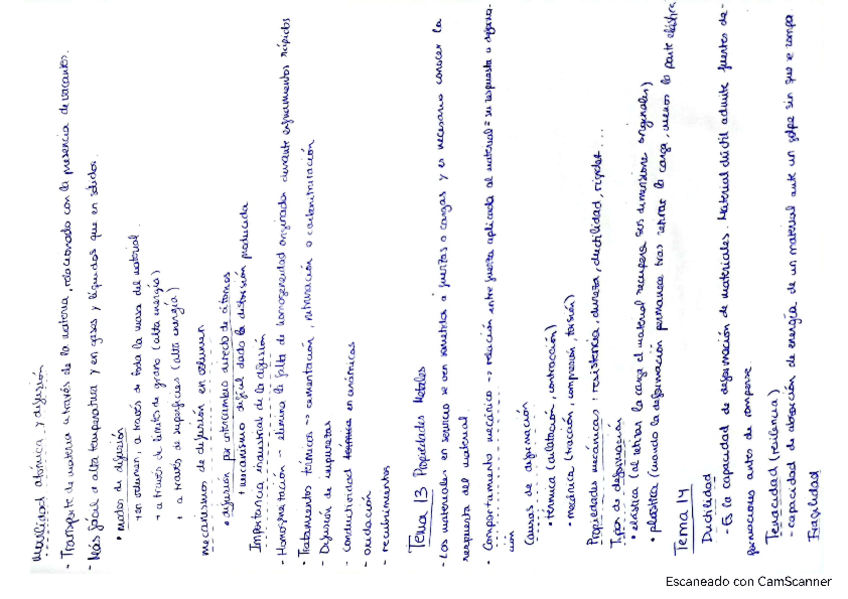 Movilidad atómica y difusión
- Transporte de materia a través de la materia, relacionado con la presencia de vacantes.
- Más fácil a alta temperatura y en gases y líquidos que en sólidos.
• modos de difusión
+ en volumen, a través de toda la masa del material
+ a través de límites de grano (alta energía)
+ a través de superficies (alta energía)
mecanismos de difusión en volumen
• difusión por intercambio directo de átomos
+ mecanismo difícil dada la distorsión producida
Importancia industrial de la difusión
- Homogenetación - elimina la falta de homogeneidad originados durante enfriamientos rápidos
- Tratamientos térmicos -> cementación, nitruración o carbonitruración
- Difusión de impurezas
- conductividad en cerámicas
- oxidación
- recubrimientos
Tema 13 Propiedades Metales
- Los materiales en servicio se ven sometidos a fuerzas o cargas y es necesario conocer la
respuesta del material
• Comportamiento mecánico -> relación entre fuerza aplicada al material = su respuesta o deforma-
ción
Causas de deformación
• térmica (dilatación, contracción)
• mecánica (tracción, compresión, torsión)
Propiedades mecánicas: resistencia, dureza, ductilidad, rigidez...
Tipos de deformación
• elástica (al retirar la carga el material recupera sus dimensiones originales)
• plástica (cuando la deformación permanece tras retirar la carga, menos la parte elástica
Tema 14
Ductilidad
- Es la capacidad de deformación de materiales. Material dúctil admite fuertes de-
formaciones antes de romperse.
Tenacidad (resiliencia)
- capacidad de absorción de energía de un material ante un golpe sin que se rompa.
Fragilidad
Escaneado con CamScanner